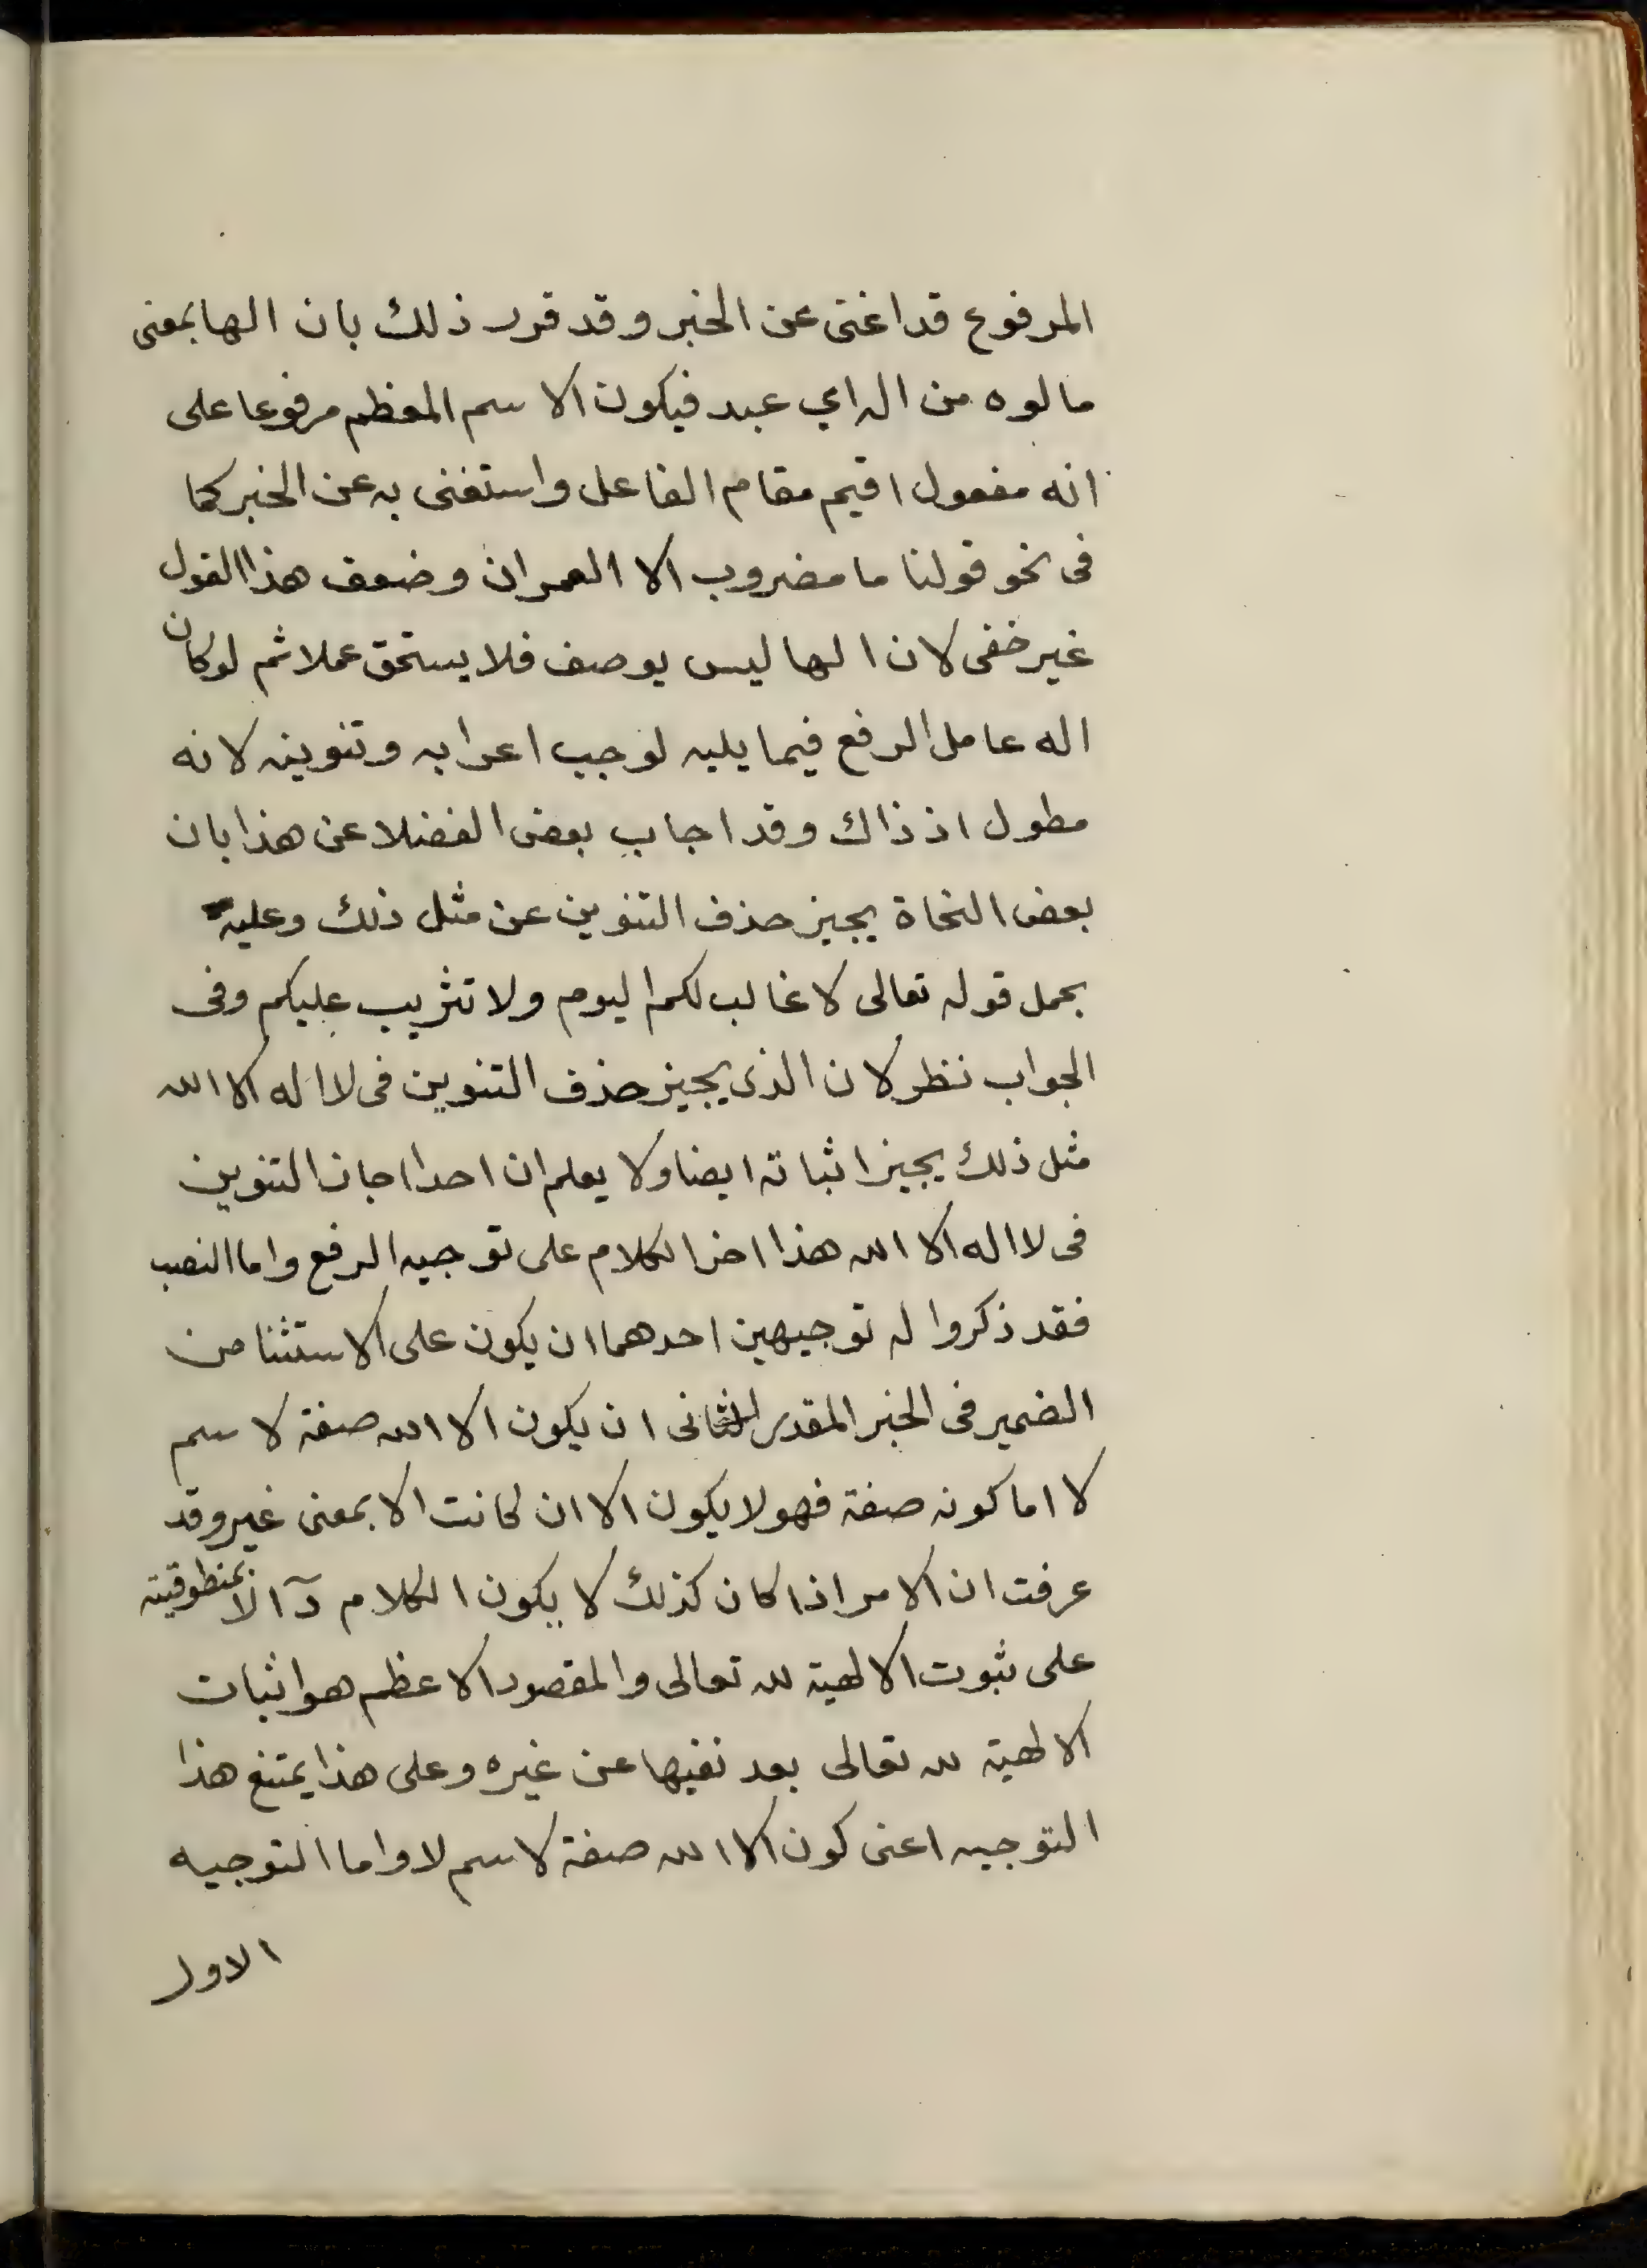 المرفوع قد اغنى عن الخبر وقد قرر ذلك بان الها بمعنى
مالوه من اله اي عبد فيكون الاسم المعظم مرفوعا على
انه مفعول اقيم مقام الفاعل واستغنى به عن الخبر كما
فى نحو قولنا ما مضروب الا العمران وضعف هذا القول
غير خفى لان الها ليس بوصف فلا يستحق عملا ثم لو كان
اله عامل الرفع فيما يليه لوجب اعرابه وتنوينه لانه
مطول اذ ذاك وقد اجاب بعض الفضلا عن هذا بان
بعض النحاة يجيز حذف التنوين عن مثل ذلك وعليه
يحمل قوله تعالى لا غالب لكم اليوم ولا تثريب عليكم وفى
الجواب نظر لان الذى يجيز حذف التنوين فى لا اله الا الله
مثل ذلك يجيز اثباته ايضا ولا يعلم ان احدا اجاز التنوين
فى لا اله الا الله هذا اخر الكلام على توجيه الرفع واما النصب
فقد ذكروا له توجيهين احدهما ان يكون على الاستثنا من
الضمير فى الخبر المقدر الثانى ان يكون الا الله صفة لاسم
لا اما كونه صفة فهو لا يكون الا ان كانت الا بمعنى غير وقد
عرفت ان الامر اذا كان كذلك لا يكون الكلام دآلا بمنطوقيته
على ثبوت الالهية لله تعالى والمقصود الاعظم هو اثبات
الالهية لله تعالى بعد نفيها عن غيره وعلى هذا يمتنع هذا
التوجيه اعنى كون الا الله صفة لاسم لا واما التوجيه
الاول